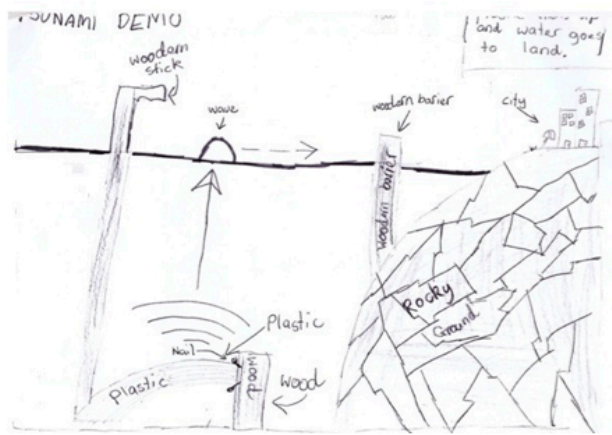 TSUNAMI DEMO
and water goes
to land.
woodarn
stick
wave
woodarn barier
city
woodarn barier
Rocky
Ground
Plastic
Nail
Plastic
wood
Wood